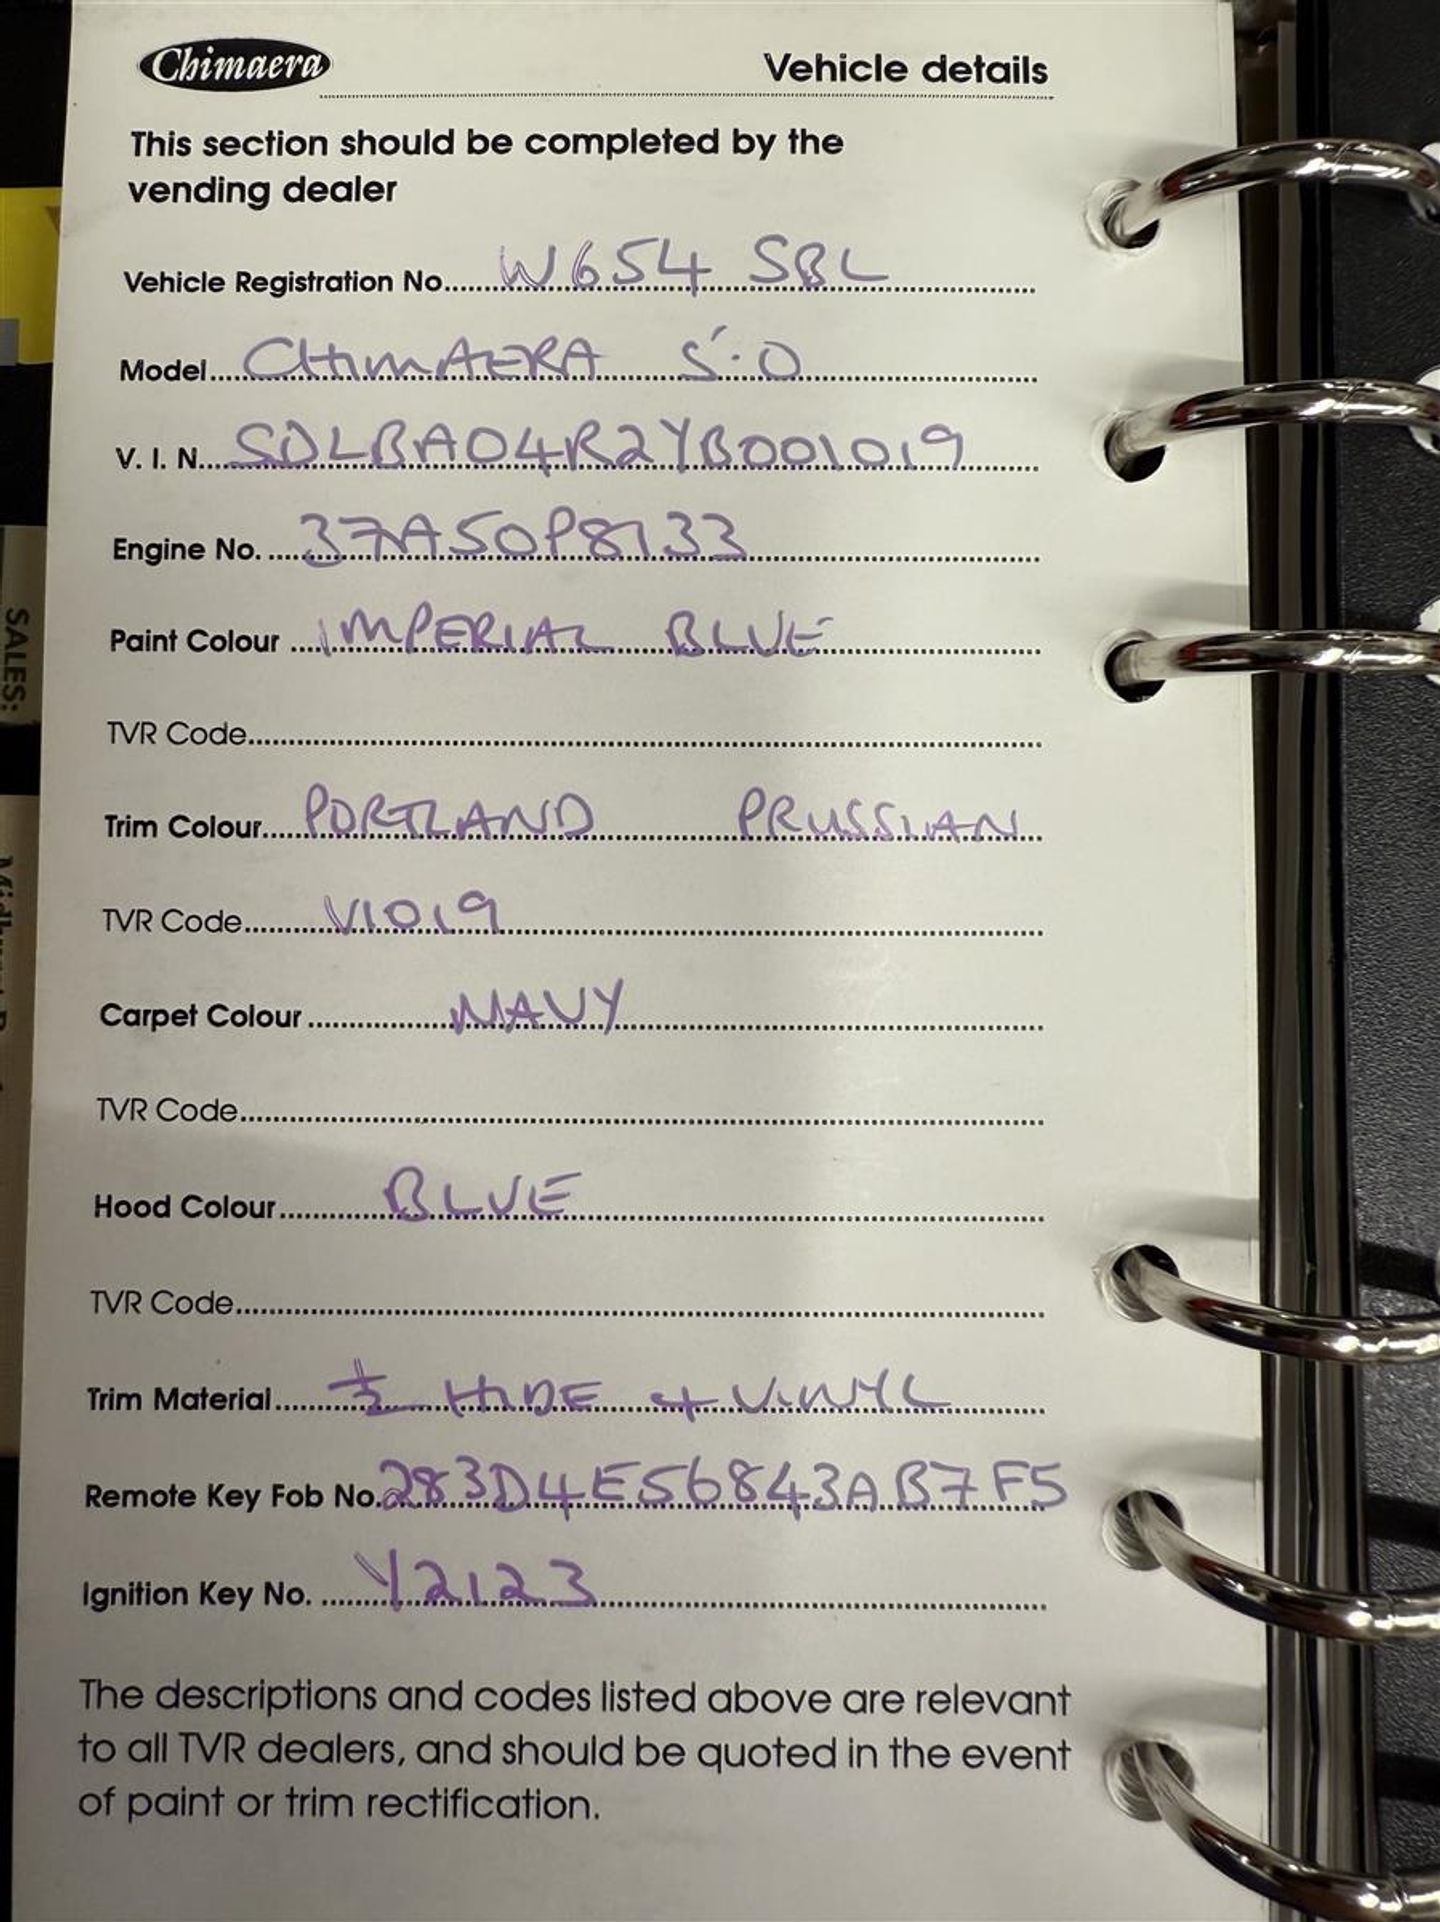 Chimaera Vehicle details
This section should be completed by the
vending dealer
Vehicle Registration No. W654 SBL
Model CHIMAERA 5.0
V. I. N. SDLBA04R2YB001019
Engine No. 37A50P8133
Paint Colour IMPERIAL BLUE
TVR Code
Trim Colour PORTLAND PRUSSIAN
TVR Code V1019
Carpet Colour NAVY
TVR Code
Hood Colour BLUE
TVR Code
Trim Material ½ HIDE + VINYL
Remote Key Fob No. 283D4E56843AB7F5
Ignition Key No. Y2123
The descriptions and codes listed above are relevant
to all TVR dealers, and should be quoted in the event
of paint or trim rectification.
SALES: